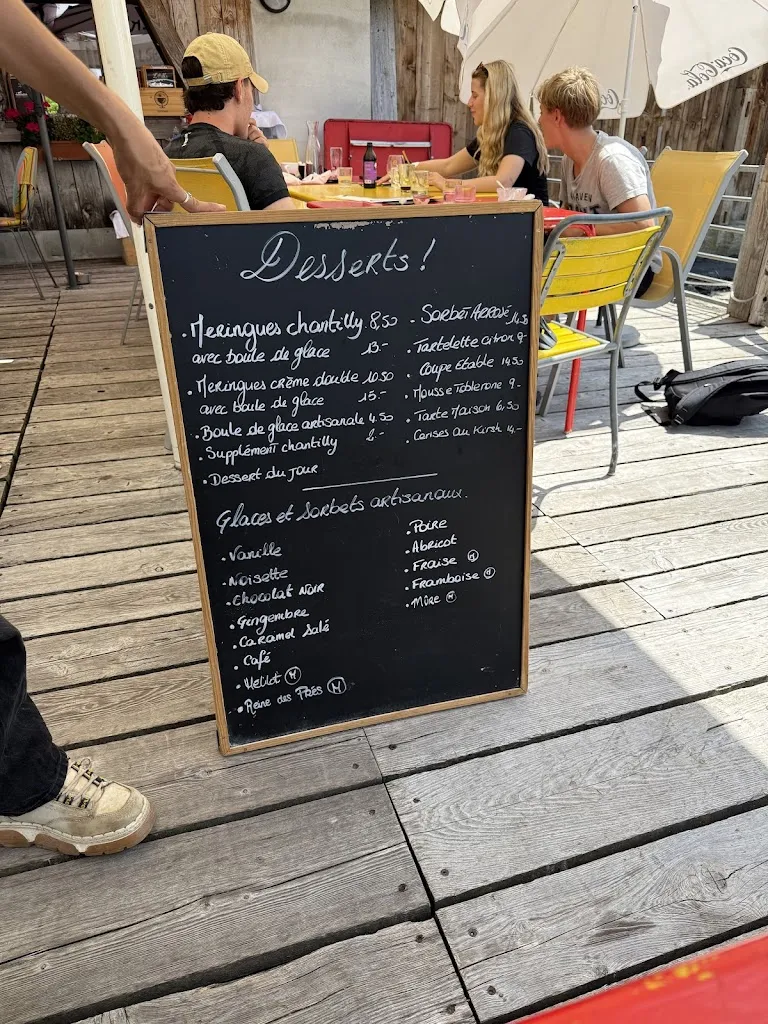 Desserts !
. Meringues chantilly 8,50
avec boule de glace 13.-
. Meringues crème double 10.50
avec boule de glace 15.-
. Boule de glace artisanale 4.50
. Supplément chantilly 2.-
. Dessert du jour
. Sorbet Arrosé 14.50
. Tartelette citron 9.-
. Coupe Etable 14.50
. Mousse Toblerone 9.-
. Tarte Maison 6,50
. Cerises au Kirsh 14.-
Glaces et sorbets artisanaux.
. Vanille
. Noisette
. Chocolat Noir
. Gingembre
. Caramel Salé
. Café
. Melilot M
. Reine des Prés M
. Poire
. Abricot
. Fraise M
. Framboise M
. Mûre M
Coca-Cola